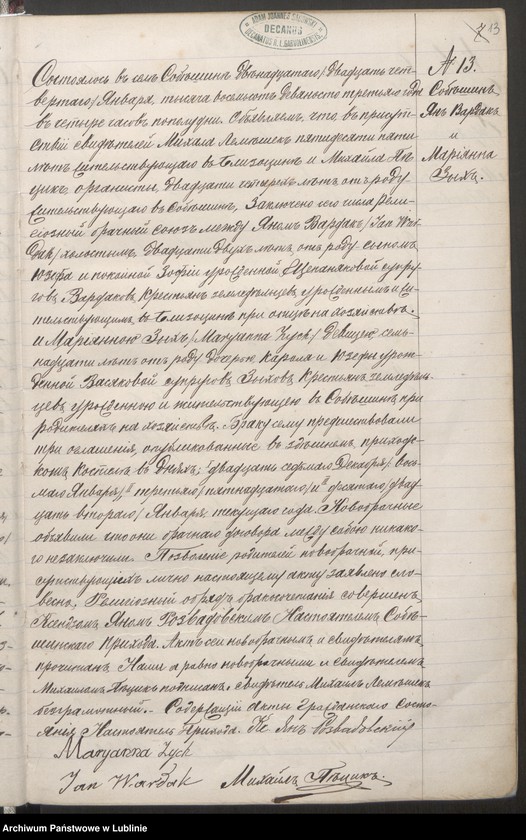 ADAM JOANNES
DECANUS
DECANATUS R. L. GARVOLINENSIS
13
№ 13.
Собѣшинъ
Янъ Вардакъ
и
Маріанна
Зыхъ.
Состоялось въ селѣ Собѣшинѣ двѣнадцатаго/двадцать чет-
вертаго/ Января, тысяча восемьсотъ девяносто третьяго года
въ четыре часовъ пополудни. Объявляемъ, что въ присут-
ствіи свидѣтелей Михала пятидесяти пяти
лѣтъ жительствующаго въ и Михаила Пѣ-
цикъ, органисты, двадцати четырехъ лѣтъ отъ роду
жительствующаго въ Собѣшинѣ, заключено сего числа рели-
гіозный брачный союзъ между Яномъ Вардакъ /Jan War-
dak/ холостымъ, двадцати двухъ лѣтъ, отъ роду сыномъ
Юзефа и покойной Зофіи урожденной Щепаняковой супру-
говъ Вардаковъ, крестьянъ земледѣльцевъ, урожденнымъ и жи-
тельствующимъ въ при отцѣ на хозяйствѣ. -
и Маріанною Зыхъ /Maryanna Zych/ дѣвицею семь-
надцати лѣтъ отъ роду дочерью Кароля и Юзефы урож-
денной супруговъ Зыховъ, крестьянъ земледѣль-
цевъ урожденною и жительствующею въ Собѣшинѣ при
родителяхъ на хозяйствѣ. - Браку сему предшествовали
три оглашенія, опубликованные въ здѣшнемъ приход-
скомъ костелѣ въ дняхъ: двадцать седьмаго Декабря/ вось-
маго Января/ третьяго /пятнадцатаго/ и десятаго /двад-
цать втораго/ Января текущаго года. Новобрачные
объявили что они брачнаго договора между собою никако-
го незаключили. Позволеніе родителей новобрачной, при-
сутствующихъ лично настоящему акту заявлено сло-
весно. Религіозный обрядъ бракосочетанія совершенъ
Ксендзомъ Яномъ Розвадовскимъ Настоятелемъ Собѣ-
шинскаго Прихода. Актъ сей новобрачнымъ и свидѣтелямъ
прочитанъ Нами а равно новобрачными и свидѣтелемъ
Михаиломъ Пѣцикъ подписанъ, свидѣтель Михалъ
безграмотный. - Содержащій акты Гражданскаго Состо-
янія Настоятель Прихода. Кс Янъ Розвадовскій
Maryanna Zych
Jan Wardak Михаилъ Пѣцикъ.
Archiwum Państwowe w Lublinie